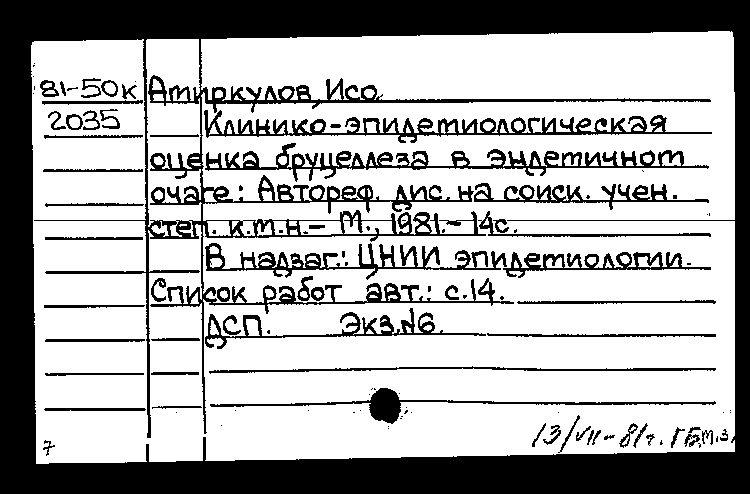 81-50к Амиркулов, Исо
2035 Клинико-эпидемиологическая
оценка бруцеллеза в эндемичном
очаге: Автореф. дис. на соиск. учен.
степ. к.м.н. - М., 1981. - 14с.
В надзаг.: ЦНИИ эпидемиологии.
Список работ авт.: с.14.
ДСП. Экз.№6.
7 13/VII-81г. ГБ